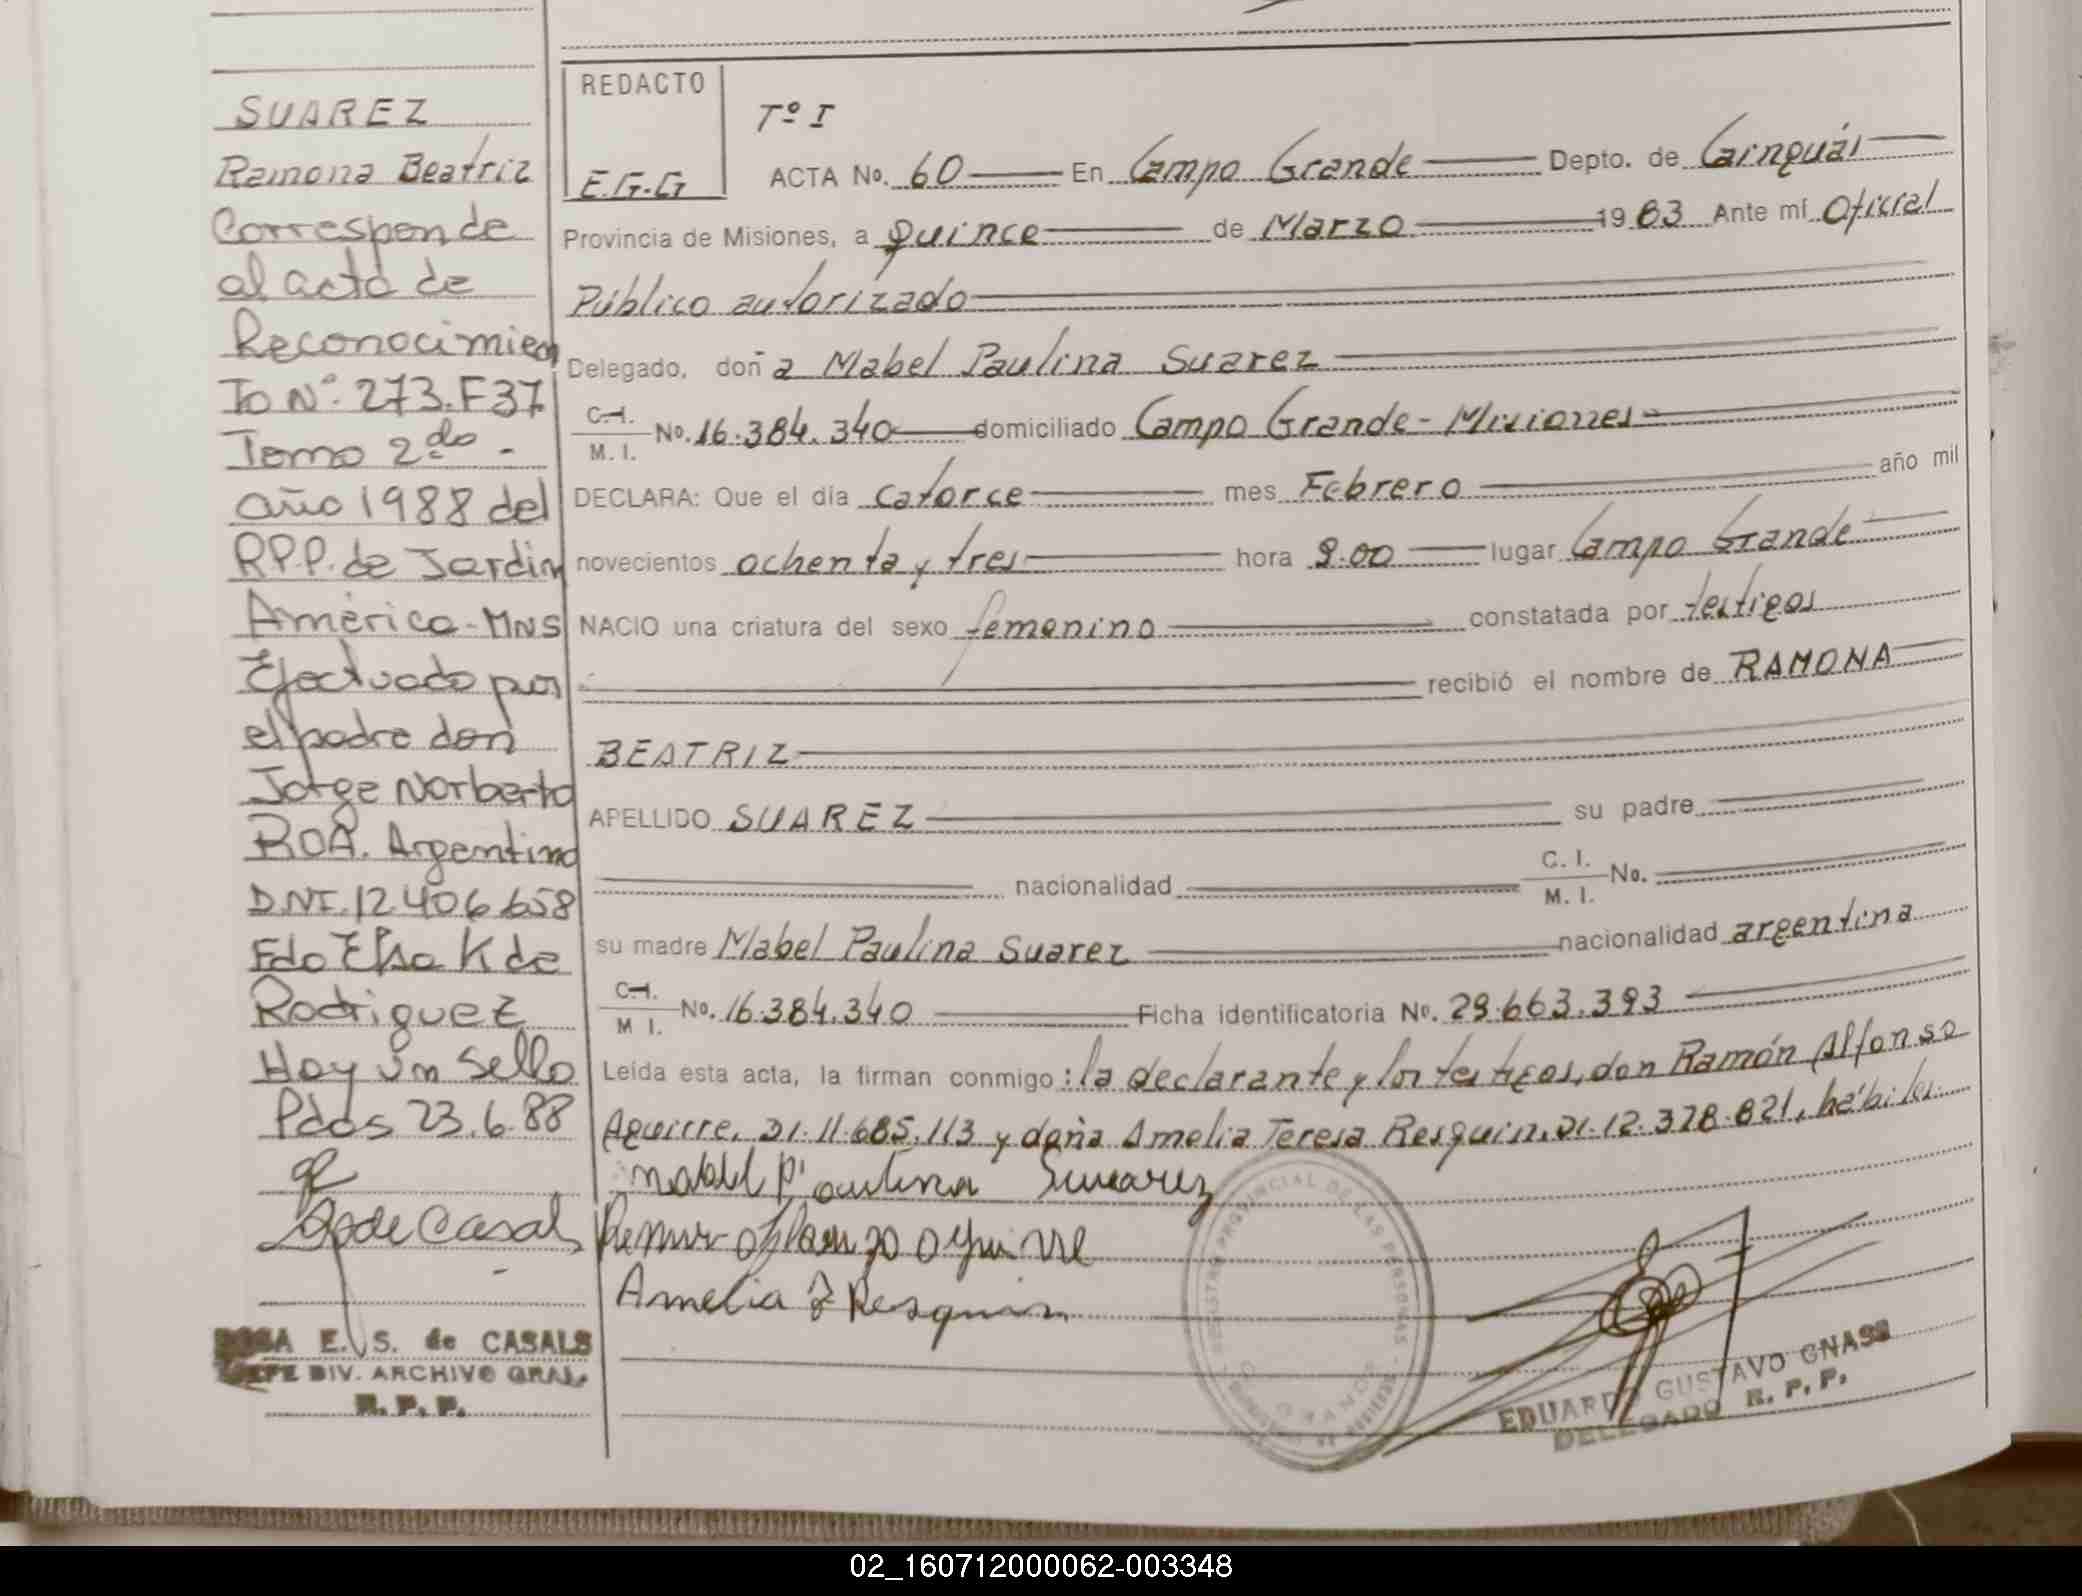 SUAREZ
Ramona Beatriz
Corresponde
al acta de
Reconocimien
to Nº. 273. F37
Tomo 2do -
año 1988 del
R.P.P. de Jardin
América - MNS
Efectuado por
el padre don
Jorge Norberto
ROA. Argentino
DNI. 12.406.658
Fdo Elsa K de
Rodriguez
Hay un sello
Pdas 23.6.88
ROSA E. S. de CASALS
JEFE DIV. ARCHIVO GRAL.
R. P. P.
REDACTO
E.G.G
Tº I
ACTA No. 60 En Campo Grande Depto. de Cainguás
Provincia de Misiones, a quince de Marzo 1983 Ante mí Oficial
Público autorizado
Delegado, doña Mabel Paulina Suarez
C.I.
M. I. No. 16.384.340 domiciliado Campo Grande - Misiones
DECLARA: Que el día catorce mes Febrero año mil
novecientos ochenta y tres hora 9.00 lugar Campo Grande
NACIO una criatura del sexo femenino constatada por testigos
recibió el nombre de RAMONA
BEATRIZ
APELLIDO SUAREZ su padre
nacionalidad C. I.
M. I. No.
su madre Mabel Paulina Suarez nacionalidad argentina
C.I.
M I. No. 16.384.340 Ficha identificatoria No. 29.663.393
Leída esta acta, la firman conmigo: la declarante y los testigos, don Ramón Alfonso
Aguirre, DI. 11.685.113 y doña Amelia Teresa Resquin, DI. 12.378.821, hábiles
Mabel Paulina Suarez
Amelia T Resquin
REGISTRO PROVINCIAL DE LAS PERSONAS
EDUARDO GUSTAVO GNASS
DELEGADO R. P. P.
02_160712000062-003348